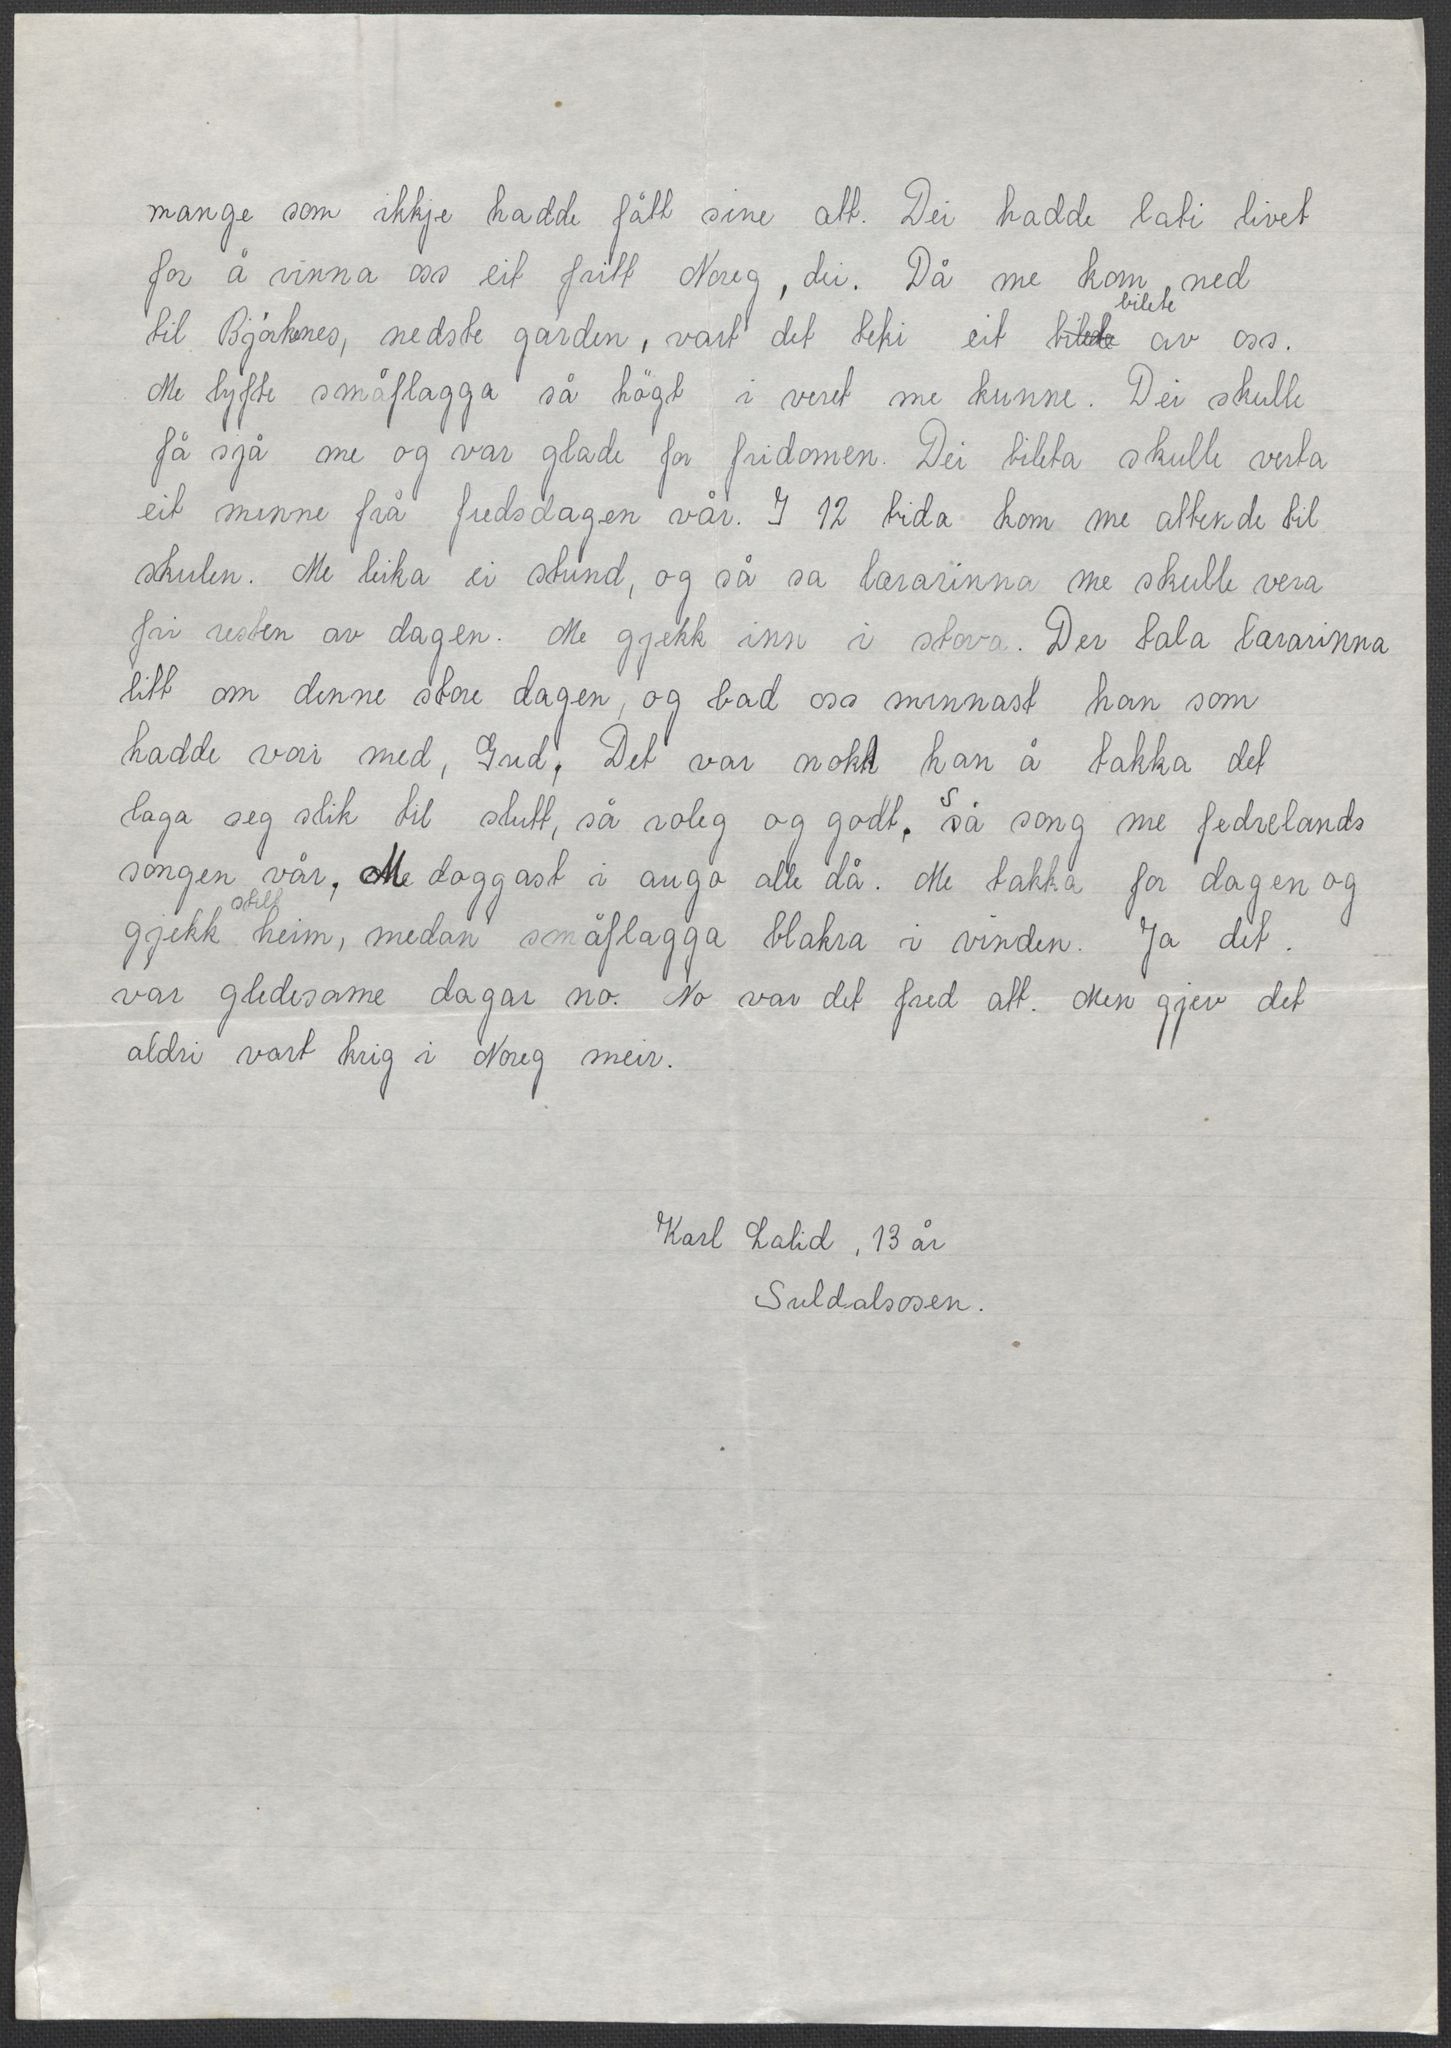 mange som ikkje hadde fått sine att. Dei hadde lati livet
for å vinna oss eit fritt Noreg, dei. Då me kom ned
til Björknes, nedste garden, vart det teki eit bilete av oss.
Me lyfte småflagga så högt i veret me kunne. Dei skulle
få sjå me og var glade for fridomen. Dei bileta skulle verta
eit minne frå fredsdagen vår. I 12 tida kom me attende til
skulen. Me leika ei stund, og så sa lærarinna me skulle vera
fri resten av dagen. Me gjekk inn i stova. Der tala lærarinna
litt om denne store dagen, og bad oss minnast han som
hadde vori med, Gud. Det var nokk han å takka det
laga seg slik til slutt, så roleg og godt. Så song me fedrelands
songen vår. Me doggast i augo alle då. Me takka for dagen og
gjekk stilt heim, medan småflagga blakra i vinden. Ja det.
var gledesame dagar no. No var det fred att. Men gjev det
aldri vart krig i Noreg meir.
Karl Lalid, 13 år
Suldalsosen.